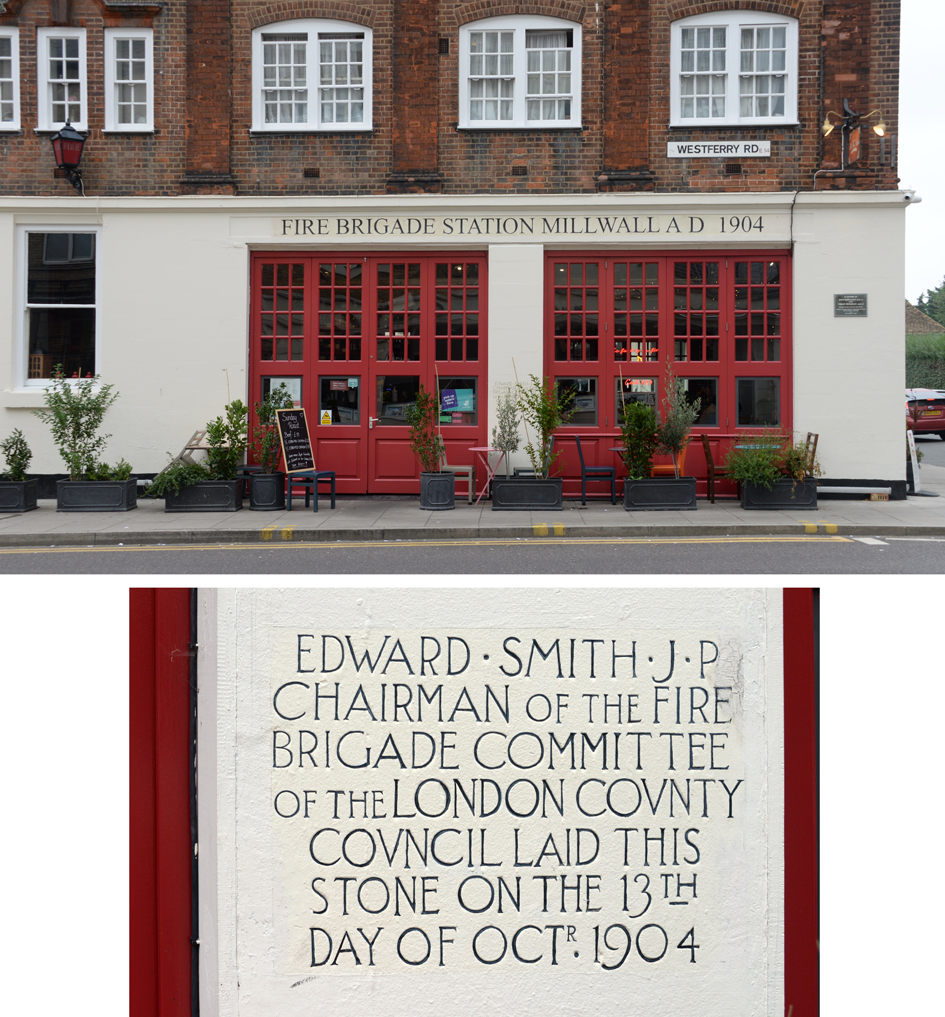 WESTFERRY RD
FIRE BRIGADE STATION MILLWALL A D 1904
Sunday
Roast
EDWARD · SMITH · J · P
CHAIRMAN OF THE FIRE
BRIGADE COMMITTEE
OF THE LONDON COVNTY
COVNCIL LAID THIS
STONE ON THE 13TH
DAY OF OCTR. 1904